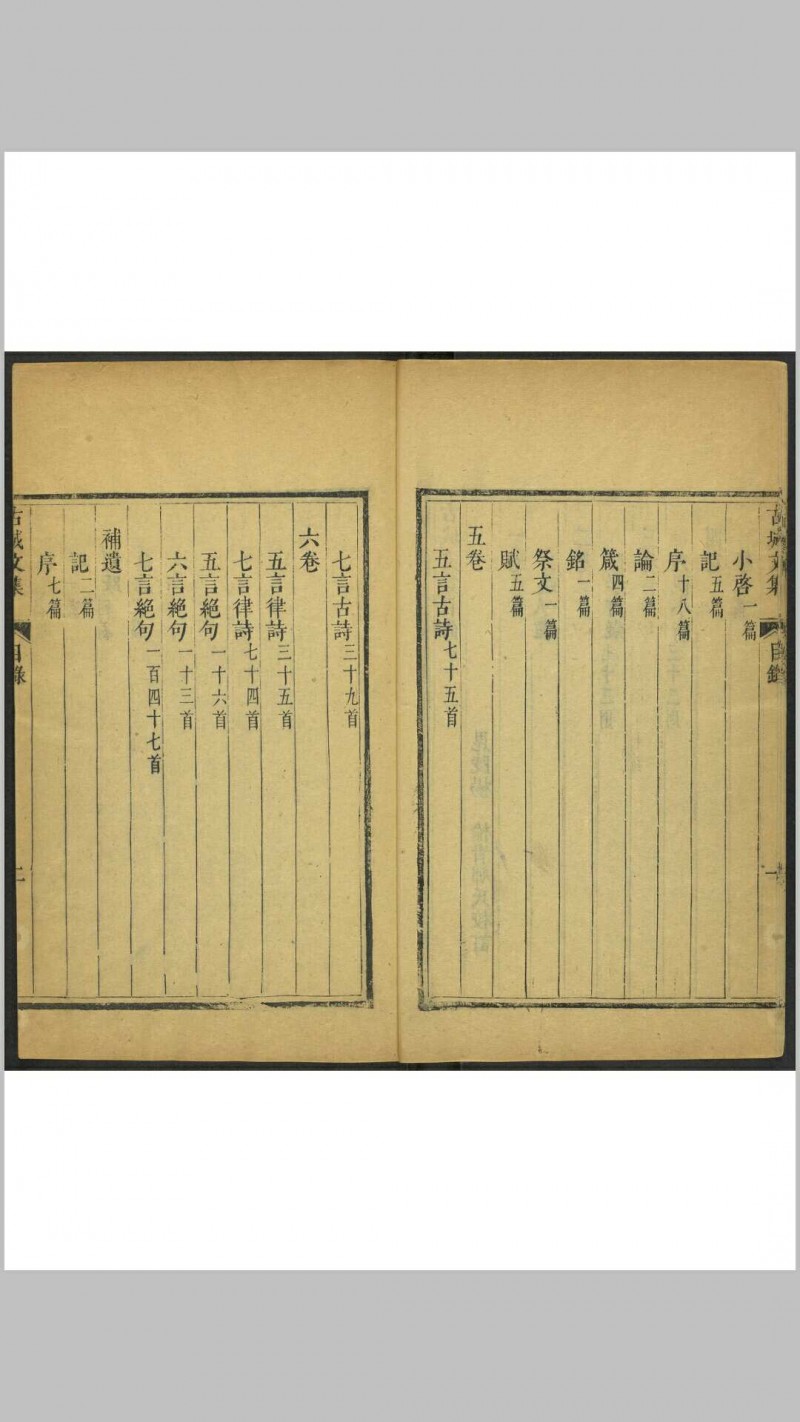 古城文集 目錄 一
小啓一篇
記五篇
序十八篇
論二篇
箴四篇
銘一篇
祭文一篇
賦五篇
五卷
五言古詩七十五首
七言古詩三十九首
六卷
五言律詩三十五首
七言律詩七十四首
五言絕句一十六首
六言絕句一十三首
七言絕句一百四十七首
補遺
記二篇
序七篇
古城文集 目錄 二